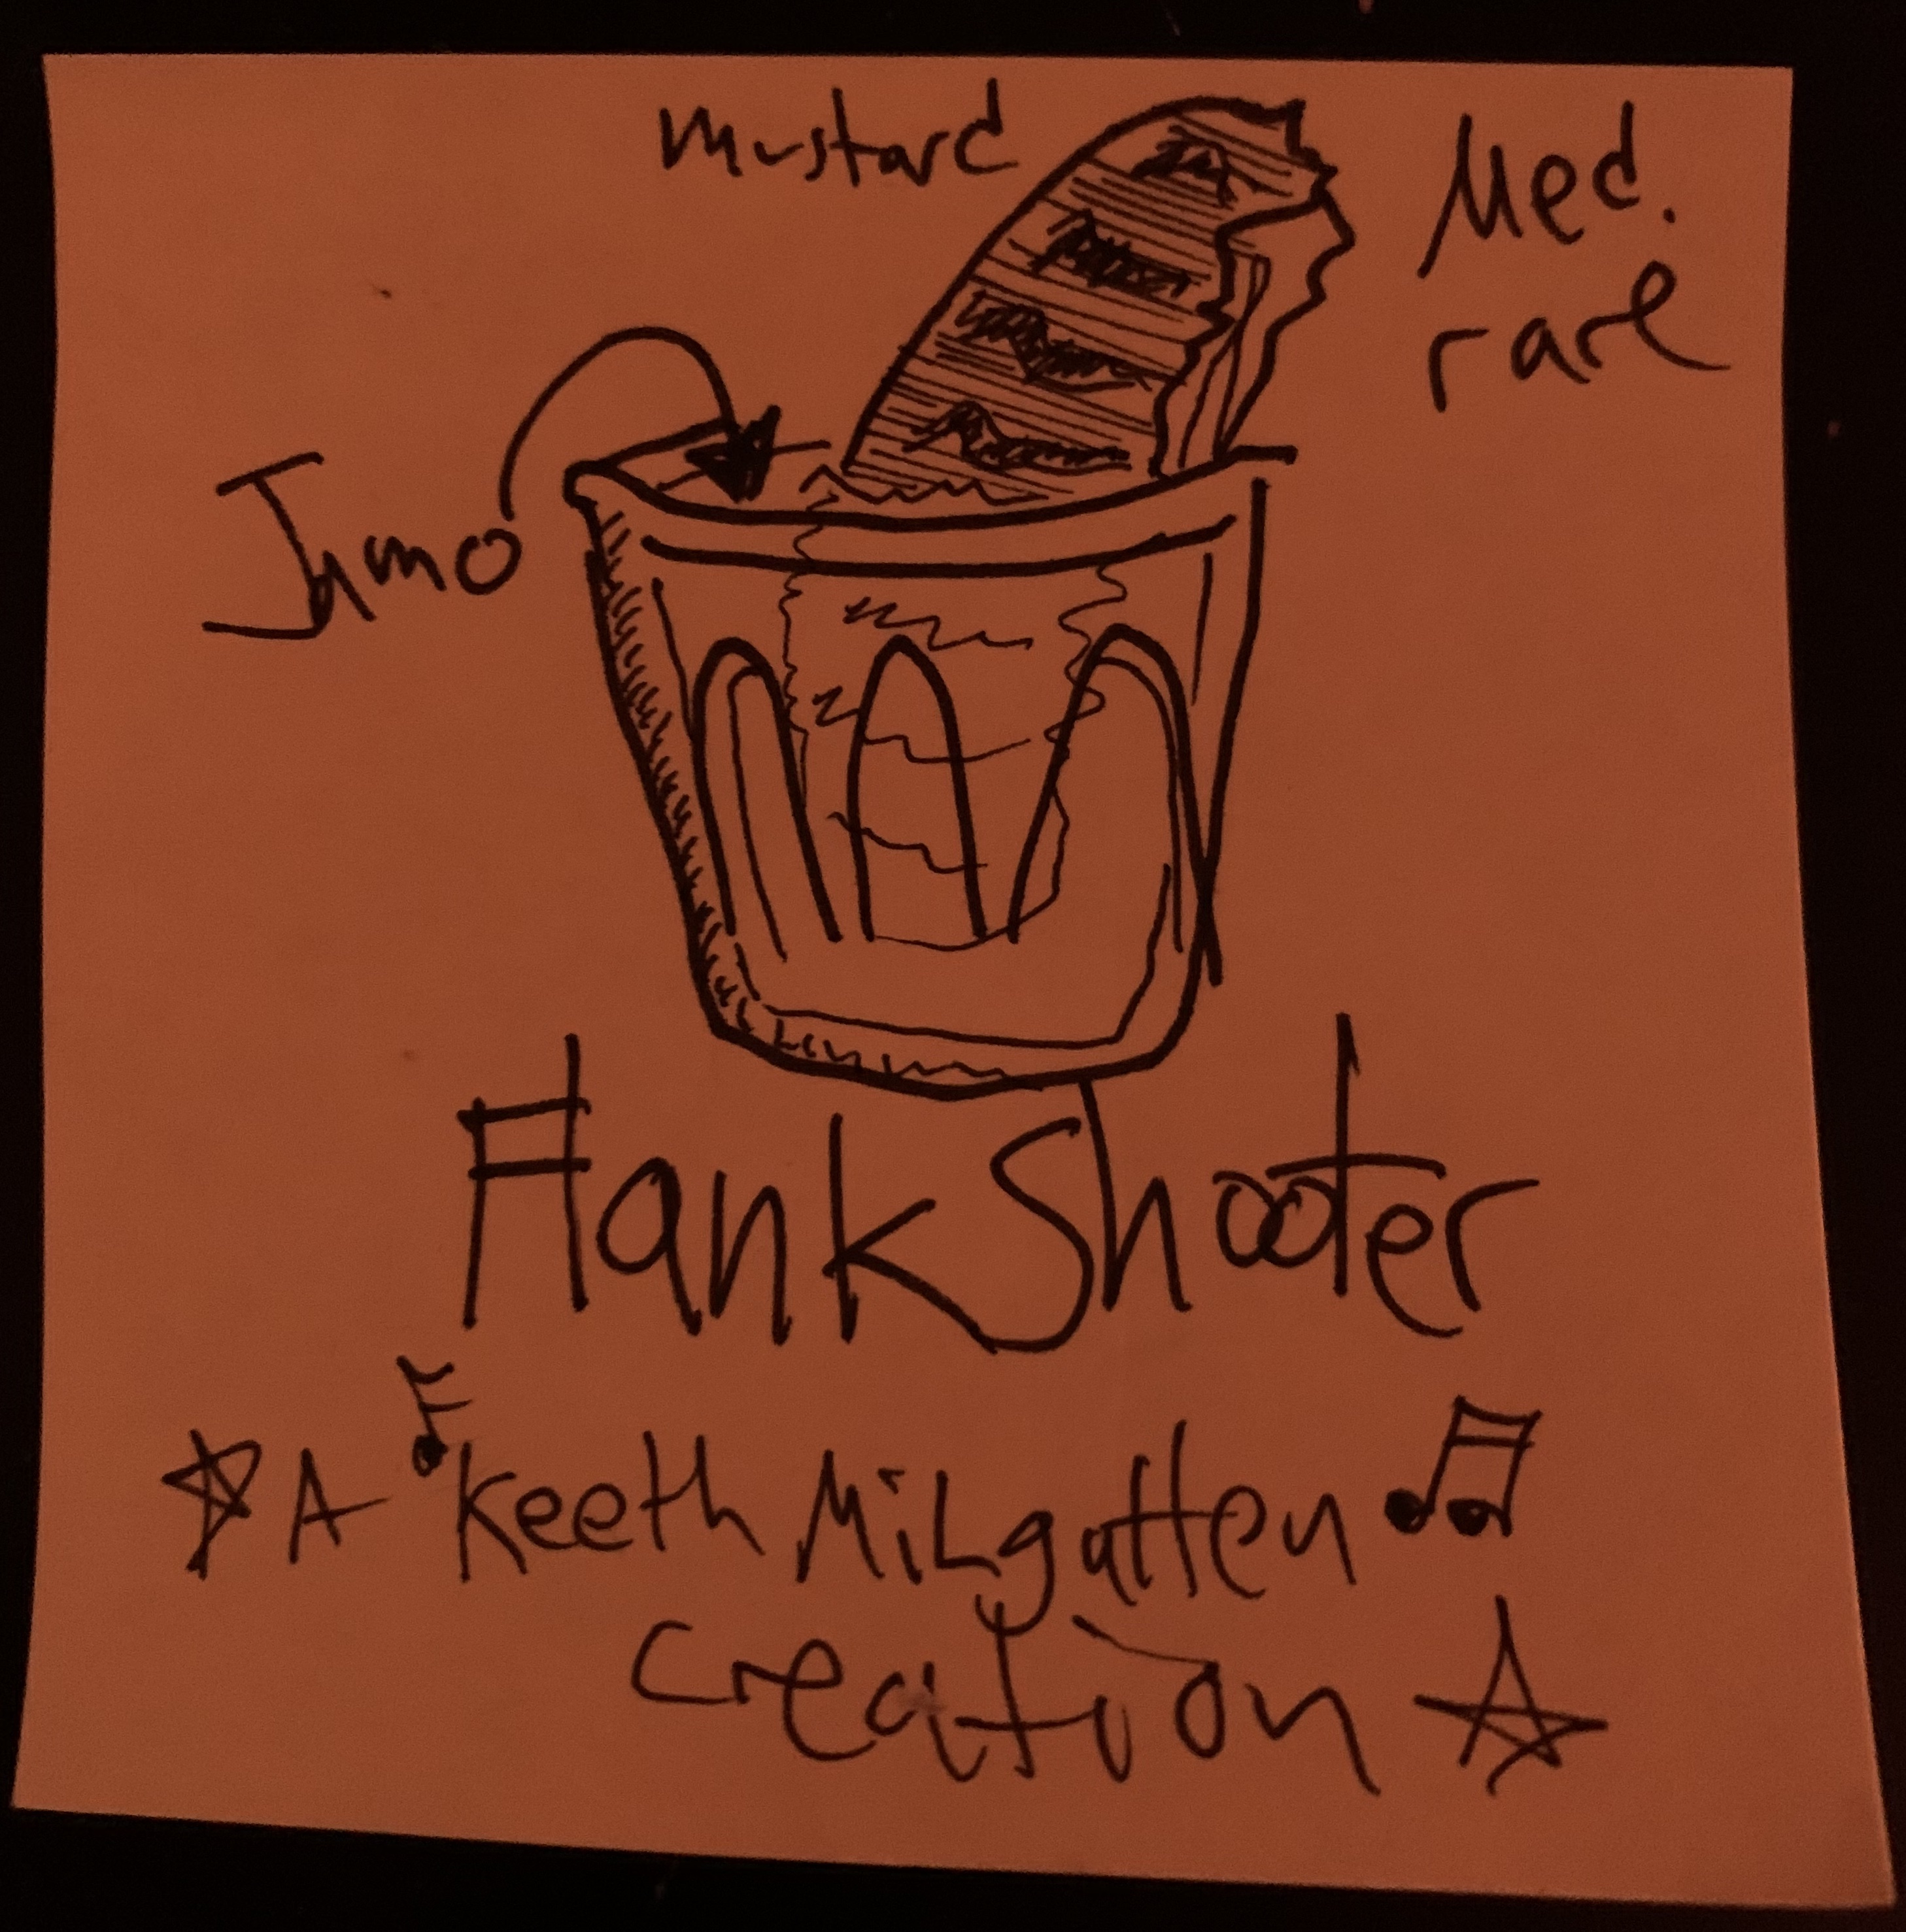 mustard
Med.
rare
Jymo
Hank Shooter
A Keeth MiLgatten
creation